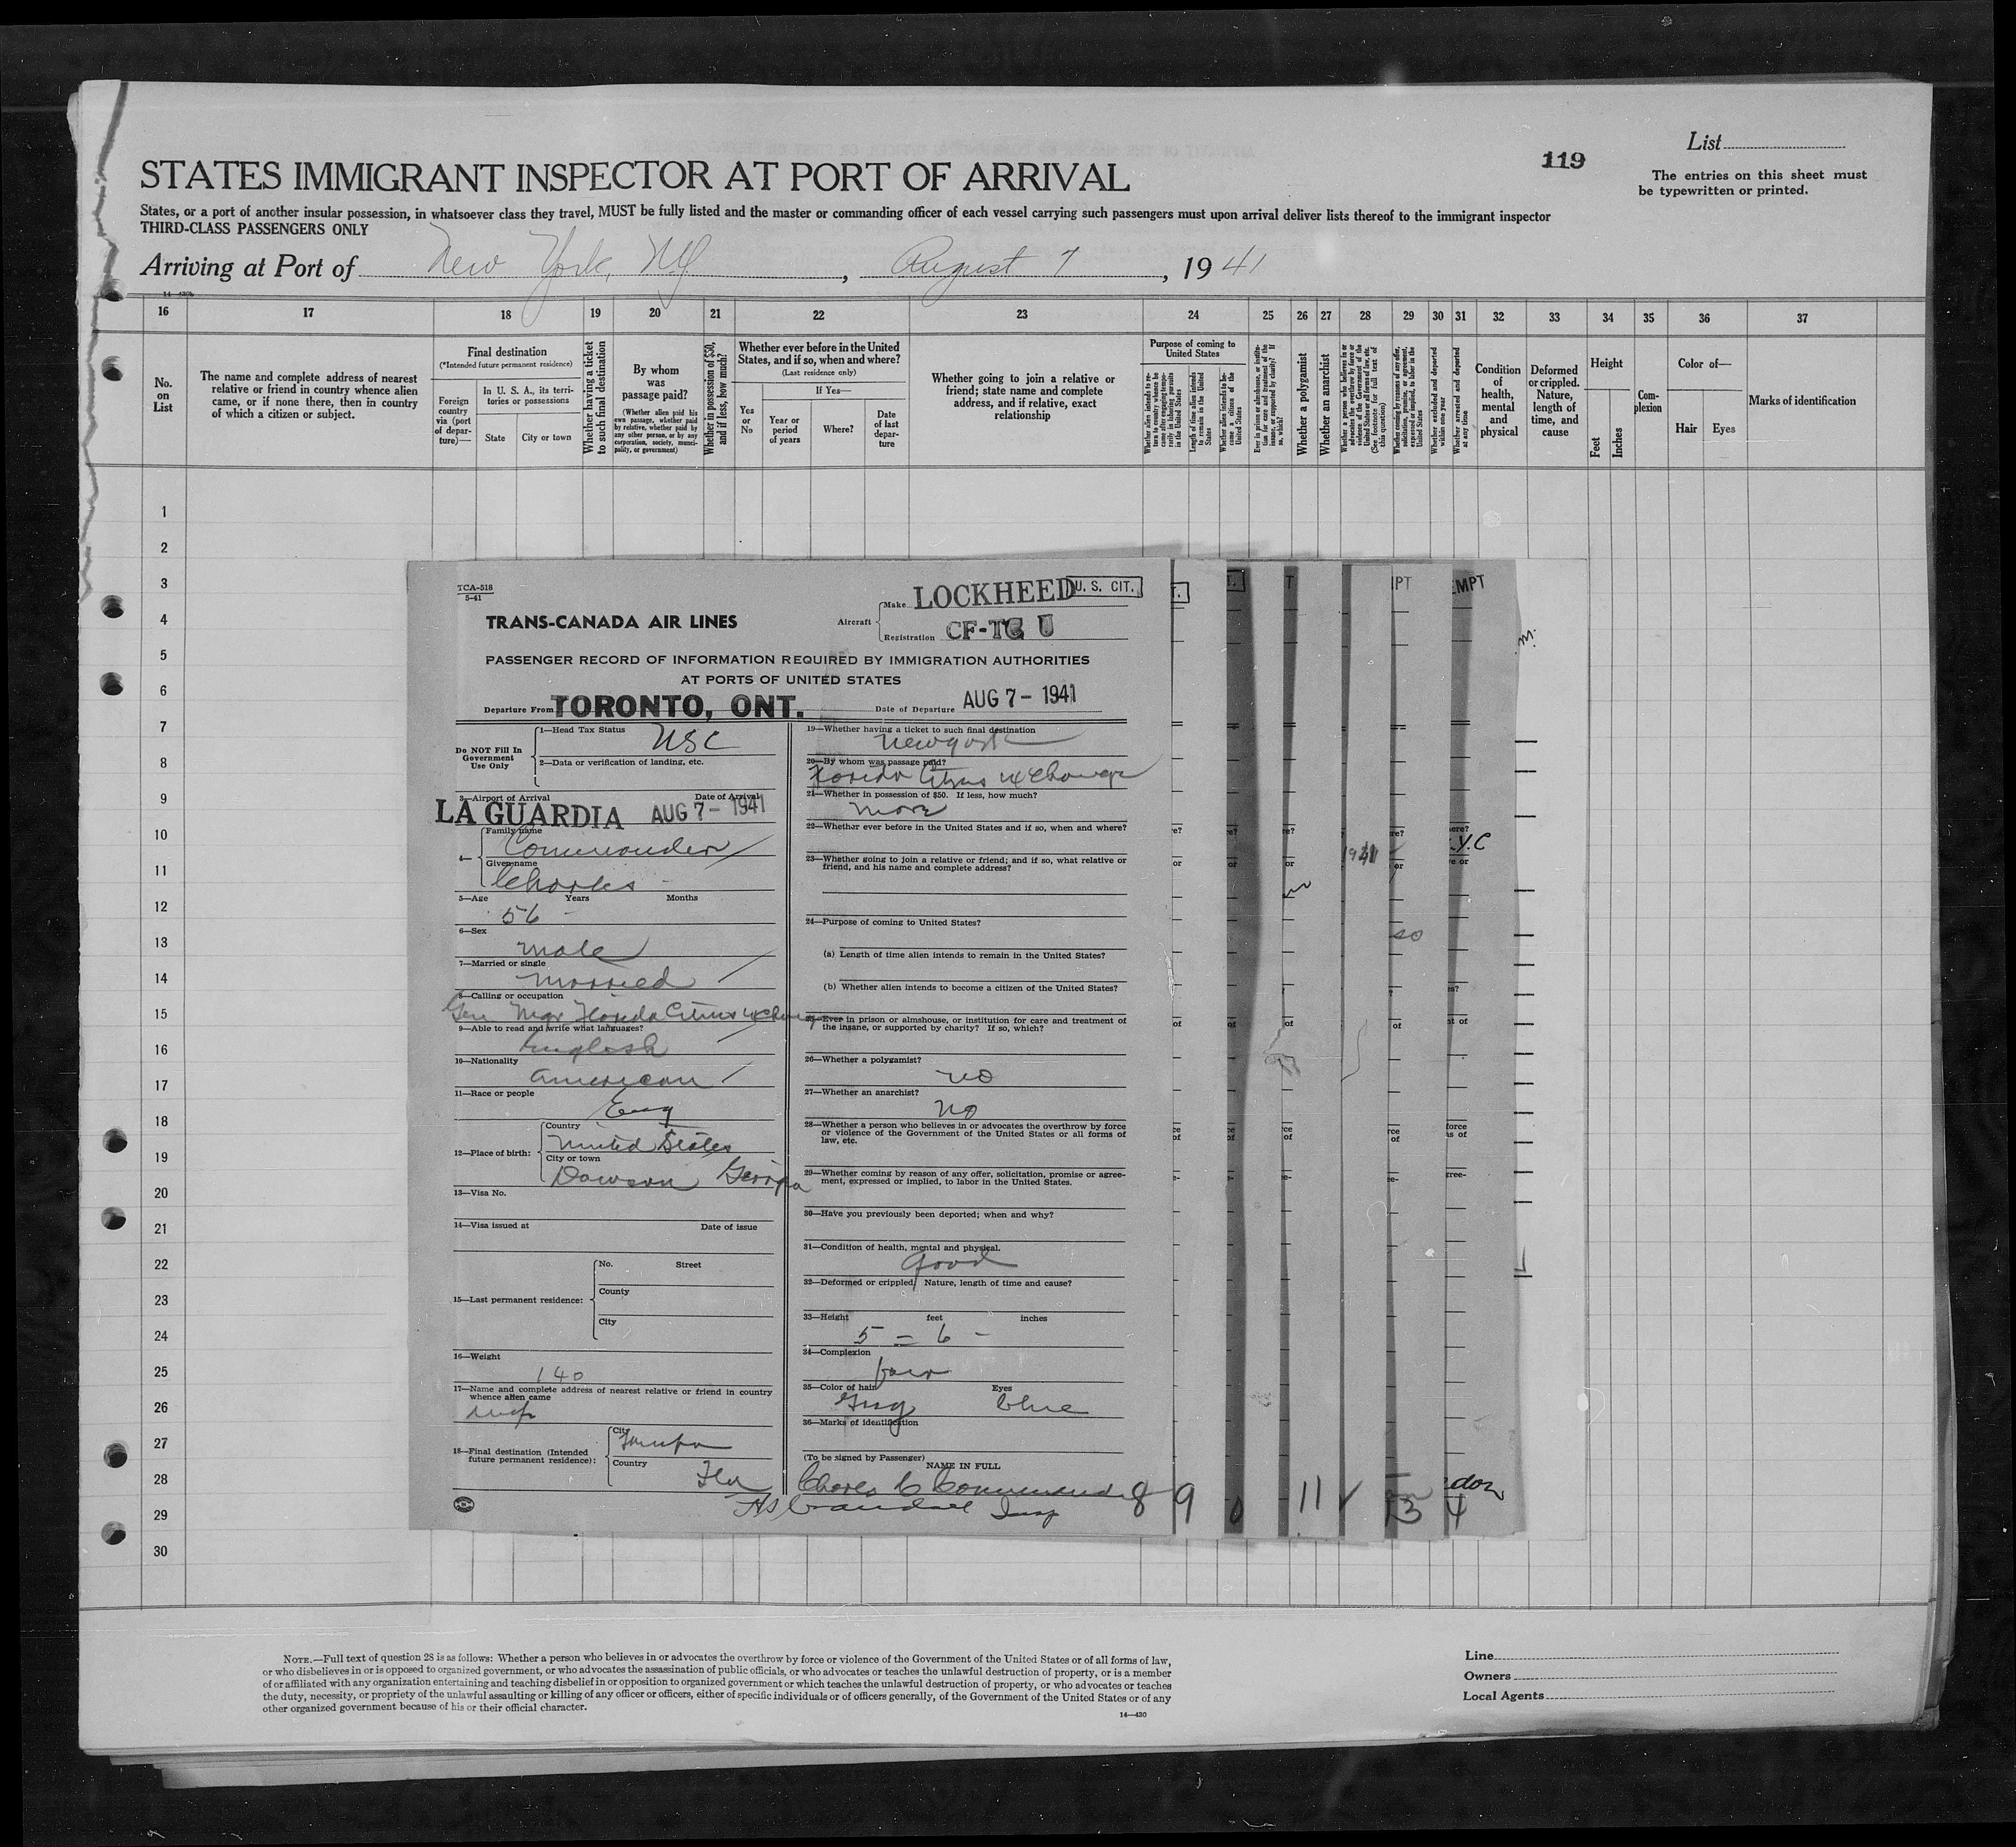 List
119
The entries on this sheet must
be typewritten or printed.
STATES IMMIGRANT INSPECTOR AT PORT OF ARRIVAL
States, or a port of another insular possession, in whatsoever class they travel, MUST be fully listed and the master or commanding officer of each vessel carrying such passengers must upon arrival deliver lists thereof to the immigrant inspector
THIRD-CLASS PASSENGERS ONLY
Arriving at Port of New York, NY, August 7, 1941
16 17 18 19 20 21 22 23 24 25 26 27 28 29 30 31 32 33 34 35 36 37
No. on List
The name and complete address of nearest
relative or friend in country whence alien
came, or if none there, then in country
of which a citizen or subject.
Final destination
(*Intended future permanent residence)
Foreign
country
via (port
of depar-
ture)—
In U. S. A., its terri-
tories or possessions
State
City or town
Whether having a ticket
to such final destination
By whom
was
passage paid?
(Whether alien paid his
own passage, whether paid
by relative, whether paid by
any other person, or by any
corporation, society, munici-
pality, or government)
Whether in possession of $50,
and if less, how much?
Whether ever before in the United
States, and if so, when and where?
(Last residence only)
If Yes—
Yes
or
No
Year or
period
of years
Where?
Date
of last
depar-
ture
Whether going to join a relative or
friend; state name and complete
address, and if relative, exact
relationship
Purpose of coming to
United States
Length of time alien intends
to remain in the United
States
Whether alien intends to be-
come a citizen of the
United States
Whether a polygamist
Whether an anarchist
Whether excluded and deported
within one year
Whether arrested and deported
at any time
Condition
of
health,
mental
and
physical
Deformed
or crippled.
Nature,
length of
time, and
cause
Height
Feet
Inches
Com-
plexion
Color of—
Hair
Eyes
Marks of identification
1
2
3
4
5
6
7
8
9
10
11
12
13
14
15
16
17
18
19
20
21
22
23
24
25
26
27
28
29
30
TCA-518
5-41
TRANS-CANADA AIR LINES
Aircraft
Make LOCKHEED
U. S. CIT.
Registration CF-TC U
PASSENGER RECORD OF INFORMATION REQUIRED BY IMMIGRATION AUTHORITIES
AT PORTS OF UNITED STATES
Departure From TORONTO, ONT.
Date of Departure AUG 7 - 1941
Do NOT Fill In
Government
Use Only
1—Head Tax Status USC
2—Data or verification of landing, etc.
3—Airport of Arrival
Date of Arrival
LA GUARDIA AUG 7 - 1941
4—
Family name
Commander
Given name
Charles
5—Age Years Months
56
6—Sex
male
7—Married or single
married
8—Calling or occupation
Gen Mgr Florida Citrus Exchange
9—Able to read and write what languages?
English
10—Nationality
american
11—Race or people
Eng
12—Place of birth:
Country
United States
City or town
Dawson Georgia
13—Visa No.
14—Visa issued at Date of issue
15—Last permanent residence:
No. Street
County
City
16—Weight
140
17—Name and complete address of nearest relative or friend in country
whence alien came
18—Final destination (Intended
future permanent residence):
City
Tampa
Country
Fla
19—Whether having a ticket to such final destination
New york
20—By whom was passage paid?
Florida Citrus Exchange
21—Whether in possession of $50. If less, how much?
more
22—Whether ever before in the United States and if so, when and where?
23—Whether going to join a relative or friend; and if so, what relative or
friend, and his name and complete address?
24—Purpose of coming to United States?
(a) Length of time alien intends to remain in the United States?
(b) Whether alien intends to become a citizen of the United States?
25—Ever in prison or almshouse, or institution for care and treatment of
the insane, or supported by charity? If so, which?
26—Whether a polygamist?
no
27—Whether an anarchist?
no
28—Whether a person who believes in or advocates the overthrow by force
or violence of the Government of the United States or all forms of
law, etc.
29—Whether coming by reason of any offer, solicitation, promise or agree-
ment, expressed or implied, to labor in the United States.
30—Have you previously been deported; when and why?
31—Condition of health, mental and physical.
good
32—Deformed or crippled, Nature, length of time and cause?
33—Height feet inches
5 - 6 -
34—Complexion
fair
35—Color of hair Eyes
Grey blue
36—Marks of identification
(To be signed by Passenger)
NAME IN FULL
Charles C Commander
Insp
8 9 11 13 4
NOTE.—Full text of question 28 is as follows: Whether a person who believes in or advocates the overthrow by force or violence of the Government of the United States or of all forms of law,
or who disbelieves in or is opposed to organized government, or who advocates the assassination of public officials, or who advocates or teaches the unlawful destruction of property, or is a member
of or affiliated with any organization entertaining and teaching disbelief in or opposition to organized government or which teaches the unlawful destruction of property, or who advocates or teaches
the duty, necessity, or propriety of the unlawful assaulting or killing of any officer or officers, either of specific individuals or of officers generally, of the Government of the United States or of any
other organized government because of his or their official character.
14—430
Line
Owners
Local Agents